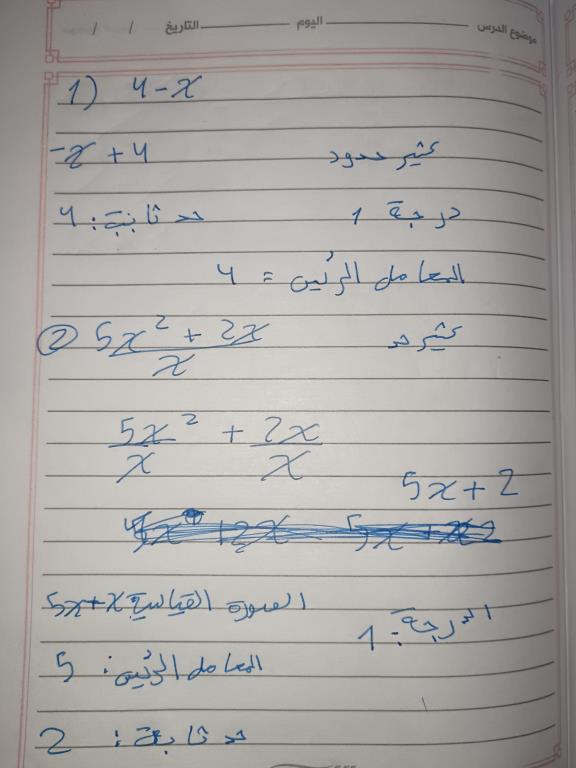 موضوع الدرس اليوم التاريخ / /
1) 4-x
-x + 4 كثير حدود
درجة 1 حد ثابت: 4
المعامل الرئيس = 4
② (5x² + 2x)/x كثير حد
5x²/x + 2x/x
5x + 2
الصورة القياسية 5x+x
الدرجة: 1
المعامل الرئيس: 5
حد ثابت: 2